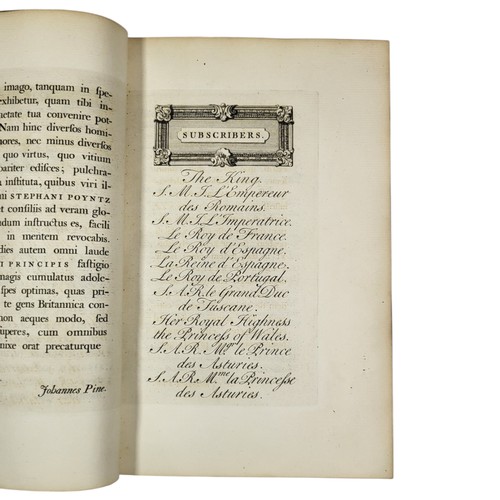 imago, tanquam in spe-
exhibetur, quam tibi in-
etate tua convenire pot-
Nam hinc diverſos homi-
nores, nec minus diverſos
quo virtus, quo vitium
pariter ediſces; pulchra-
inſtituta, quibus viri il-
mi STEPHANI POYNTZ
et conſiliis ad veram glo-
ndum inſtructus es, facili
in mentem revocabis.
dies autem omni laude
I PRINCIPIS faſtigio
magis cumulatus adole-
ſpes optimas, quas pri-
te gens Britannica con-
non aeques modo, ſed
ſuperes, cum omnibus
nixe orat precaturque
Johannes Pine.
SUBSCRIBERS.
The King.
S. M. I. L'Empereur
des Romains.
S. M. I. L'Imperatrice.
Le Roy de France.
Le Roy d'Espagne.
La Reine d'Espagne.
Le Roy de Portugal.
S. A. R. le Grand Duc
de Tuscane.
Her Royal Highness
the Princess of Wales.
S. A. R. Mgr. le Prince
des Asturies.
S. A. R. Mme. la Princesse
des Asturies.